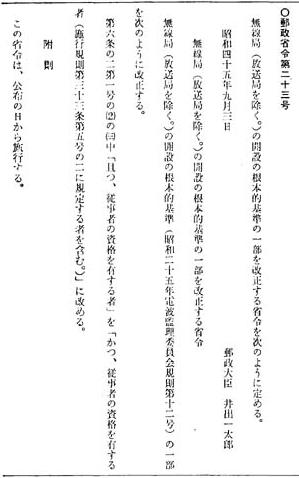 〇郵政省令第二十三号
無線局（放送局を除く。）の開設の根本的基準の一部を改正する省令を次のように定める。
昭和四十五年九月三日
郵政大臣　井出一太郎
無線局（放送局を除く。）の開設の根本的基準の一部を改正する省令
無線局（放送局を除く。）の開設の根本的基準（昭和二十五年電波監理委員会規則第十二号）の一部
を次のように改正する。
第六条の二第一号の(2)の㈢中「且つ、従事者の資格を有する者」を「かつ、従事者の資格を有する
者（施行規則第三十三条第五号の二に規定する者を含む。）」に改める。
附　則
この省令は、公布の日から施行する。